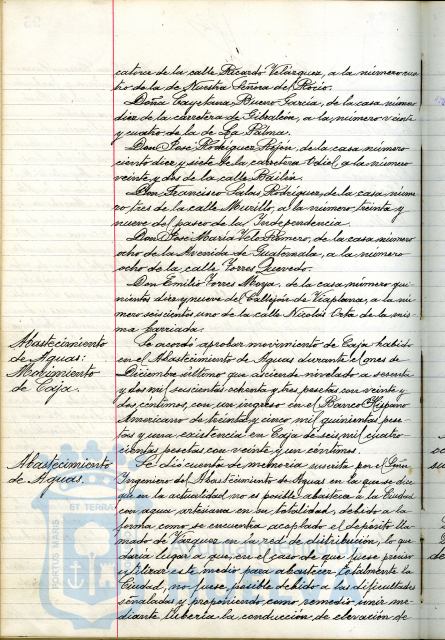 catorce de la calle Ricardo Velázquez, a la número cua
tro de la de Nuestra Señora del Rocío.
Doña Cayetana Bueno García, de la casa número
diez de la carretera de Gibraleón, a la número veinte
y cuatro de la de La Palma.
Don José Rodríguez Rejón, de la casa número
ciento diez y siete de la carretera Odiel a la número
veinte y dos de la calle Bailén.
Don Francisco Salas Rodríguez, de la casa núme
ro tres de la calle Murillo, a la número treinta y
nueve del paseo de la Independencia.
Don José María Vele Romero, de la casa número
ocho de la Avenida de Guatemala, a la número
ocho de la calle Torres Quevedo.
Don Emilio Torres Moya, de la casa número qui-
nientos diez y nueve del Callejón de Viaplana, a la nú
mero seiscientos uno de la calle Nicolás Orta de la mis-
ma barriada.
Abastecimiento
de Aguas:
Movimiento
de Caja.
Se acordó aprobar movimiento de Caja habido
en el Abastecimiento de Aguas durante el mes de
Diciembre último que asciende nivelado a sesenta
y dos mil seiscientas ochenta y tres pesetas con veinte y
dos céntimos, con un ingreso en el Banco Hispano
Americano de treinta y cinco mil quinientas pese-
tas y una existencia en Caja de seis mil cuatro-
cientas pesetas con veinte y un céntimos.
Abastecimiento
de Aguas.
Se dió cuenta de memoria suscrita por el
Ingeniero del Abastecimiento de Aguas en la que se dice
que en la actualidad no es posible abastecer a la Ciudad
con agua artesiana en su totalidad, debido a la
forma como se encuentra acoplado el depósito lla-
mado de Vázquez en la red de distribución, lo que
daría lugar a que en el caso de que fuese preciso
utilizar este medio para abastecer totalmente la
Ciudad, no fuese posible debido a las dificultades
señaladas y proponiendo como remedio unir me-
diante tubería la conducción de elevación de
PORTUS MARIS
ET TERRAE